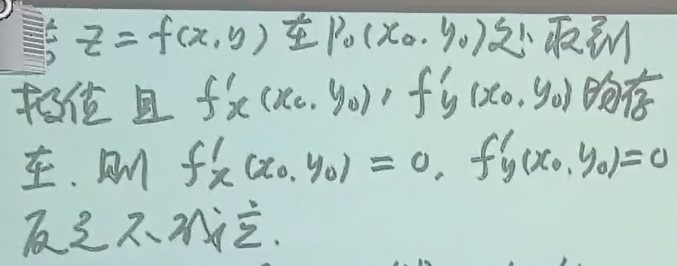 z = f(x,y) 在 P₀(x₀,y₀)处取到
极值且 f'x(x₀,y₀), f'y(x₀,y₀) 均存
在. 则 f'x(x₀,y₀) = 0, f'y(x₀,y₀)=0
反之不